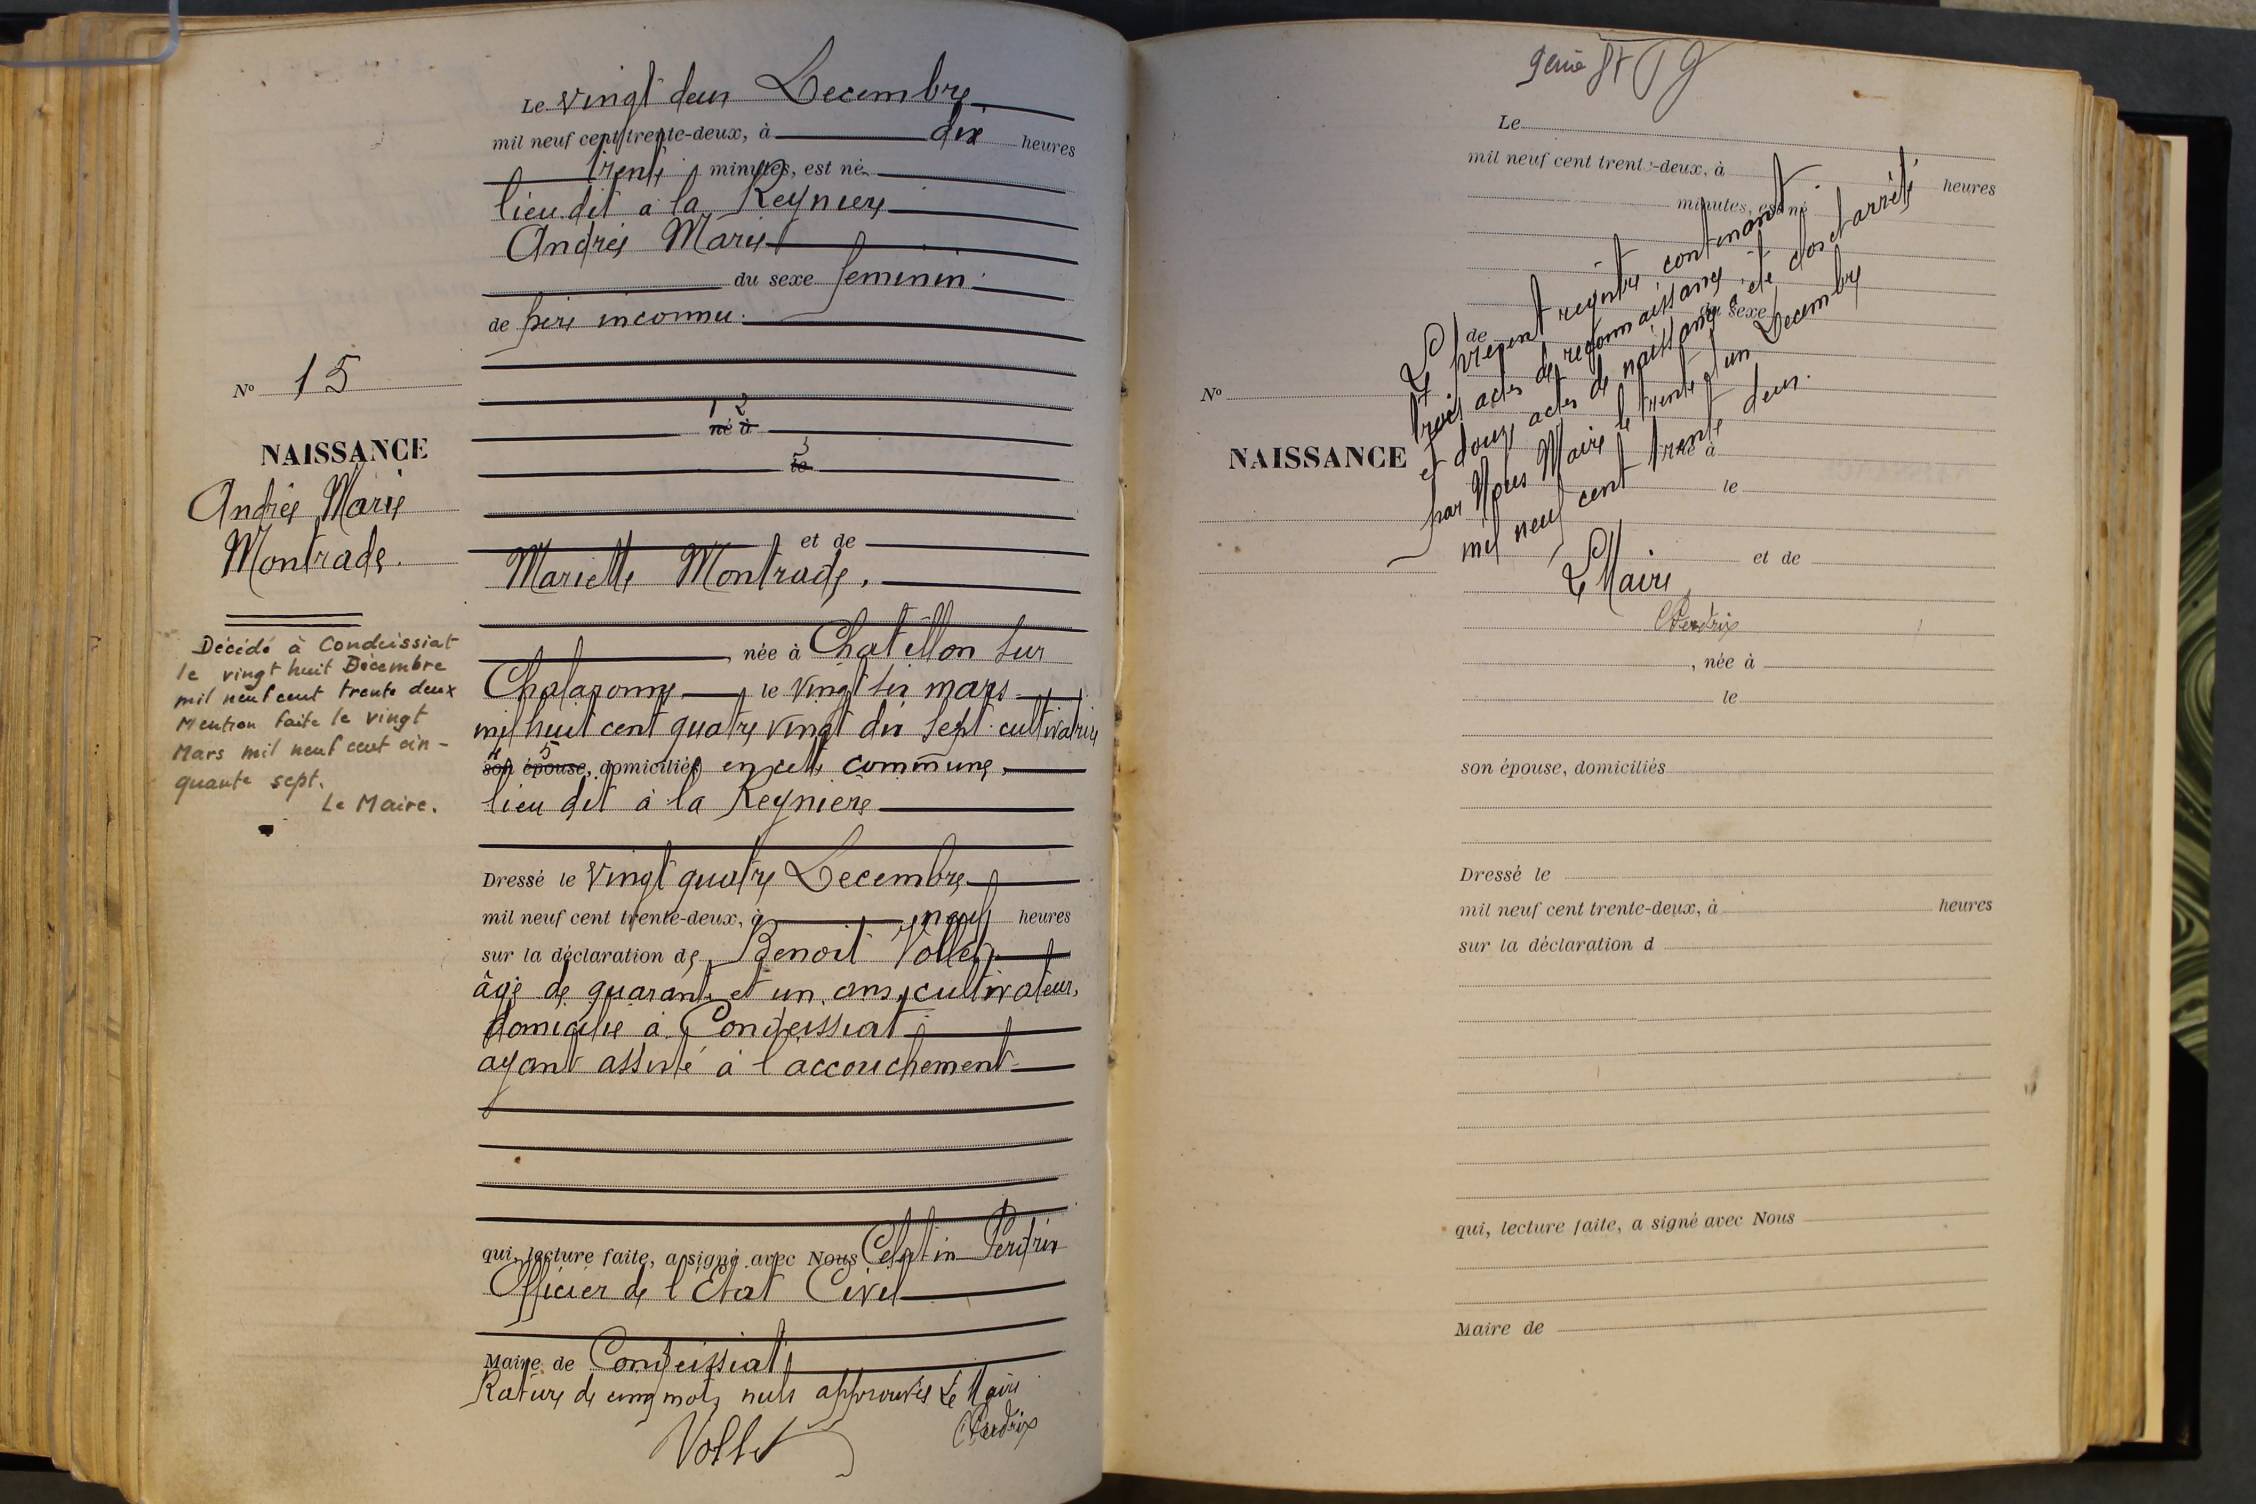 Le vingt deux Decembre
mil neuf cent trente-deux, à dix heures
trente minutes, est né
lieu dit a la Reyniere
Andrée Marie
du sexe feminin
de père inconnu
1 2
né à
3
le
et de
Mariette Montrade,
, née à Chatillon sur
Chalaronne, le vingt six mars
mil huit cent quatre vingt dix sept cultivatrice
4 5
son épouse, domiciliée en cette commune,
lieu dit à la Reyniere
Dressé le vingt quatre Decembre
mil neuf cent trente-deux, à neuf heures
sur la déclaration de Benoit Vollet
âgé de quarante et un ans, cultivateur,
domicilié à Condeissiat
ayant assisté à l'accouchement
qui, lecture faite, a signé avec Nous Celestin Perdrix
Officier de l'Etat Civil
Maire de Condeissiat
Rature de cinq mots nuls approuvés Le Maire
Vollet
CPerdrix
N° 15
NAISSANCE
Andrée Marie
Montrade.
Décédé à Condeissiat
le vingt huit Décembre
mil neuf cent trente deux
Mention faite le vingt
Mars mil neuf cent cin-
quante sept.
Le Maire.
Le
mil neuf cent trente-deux, à heures
minutes, est né
du sexe
de
N°
NAISSANCE
Le présent registre contenant
trois actes de reconnaissance
et douze actes de naissance a été clos et arrêté
par Nous Maire le trente et un Decembre
mil neuf cent trente deux.
Le Maire
CPerdrix
né à
le
et de
, née à
le
son épouse, domiciliés
Dressé le
mil neuf cent trente-deux, à heures
sur la déclaration d
qui, lecture faite, a signé avec Nous
Maire de